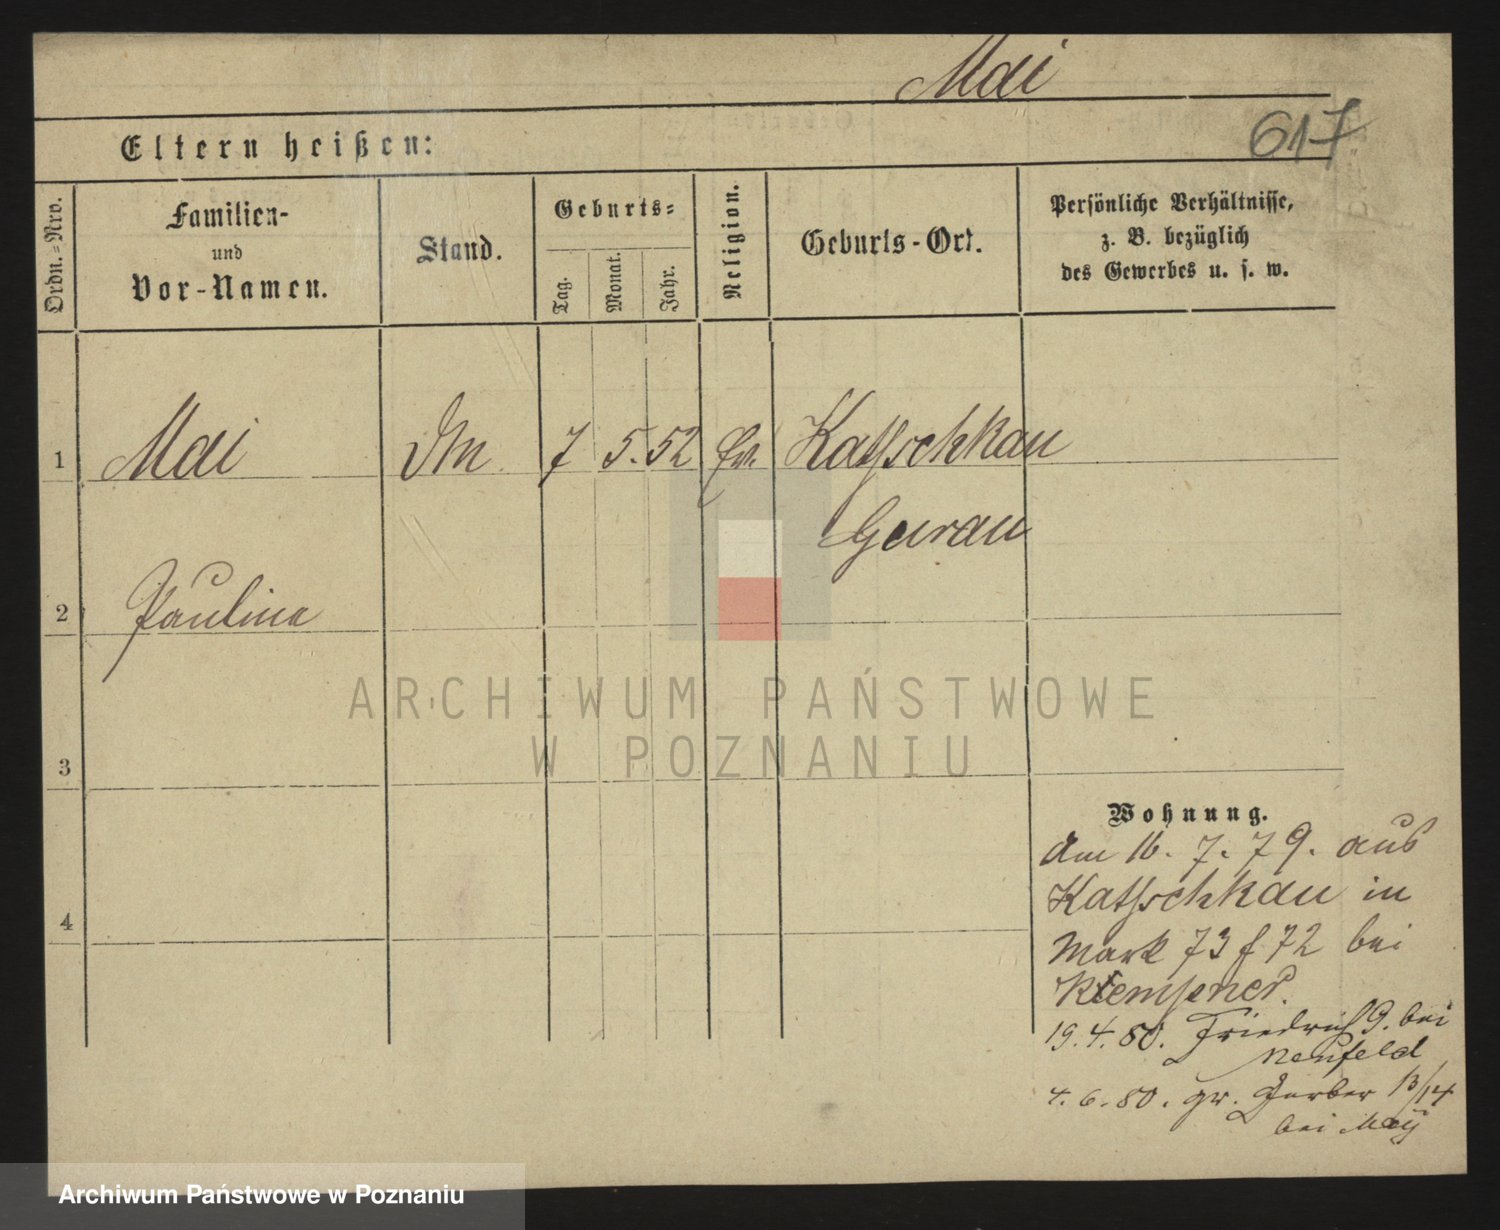 Mai
617
Eltern heißen:
Ordn.=Nro.
Familien-
und
Vor-Namen.
Stand.
Geburts=
Tag.
Monat.
Jahr.
Religion.
Geburts-Ort.
Persönliche Verhältnisse,
z. B. bezüglich
des Gewerbes u. s. w.
1 Mai 7 5. 52 Ev. Katschkau
Gurau
2 Pauline
3
4
ARCHIWUM PAŃSTWOWE
W POZNANIU
Wohnung.
Am 16. 7. 79. aus
Katschkau in
Mark 73 f 72 bei
Kempner.
19. 4. 80. Friedrich 9. bei
Neufeld
4. 6. 80. gr. Gerber 13/14
bei May
Archiwum Państwowe w Poznaniu